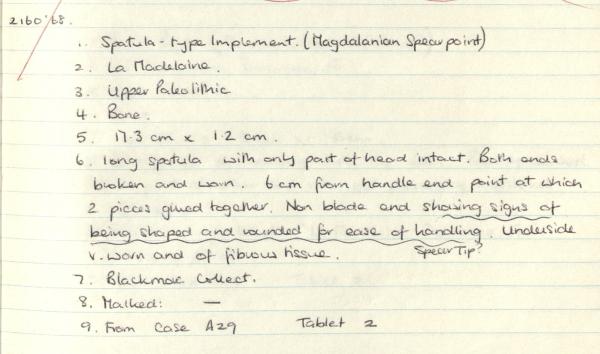 2160'68.
1. Spatula-type Implement. (Magdalanian Spearpoint)
2. La Madelaine.
3. Upper Paleolithic
4. Bone.
5. 17.3 cm x 1.2 cm.
6. long spatula with only part of head intact. Both ends
broken and worn. 6 cm from handle end point at which
2 pieces glued together. Non blade end showing signs of
being shaped and rounded for ease of handling. Underside
v. worn and of fibrous tissue. Spear Tip?
7. Blackmore Collect.
8. Marked: —
9. From Case A29 Tablet 2